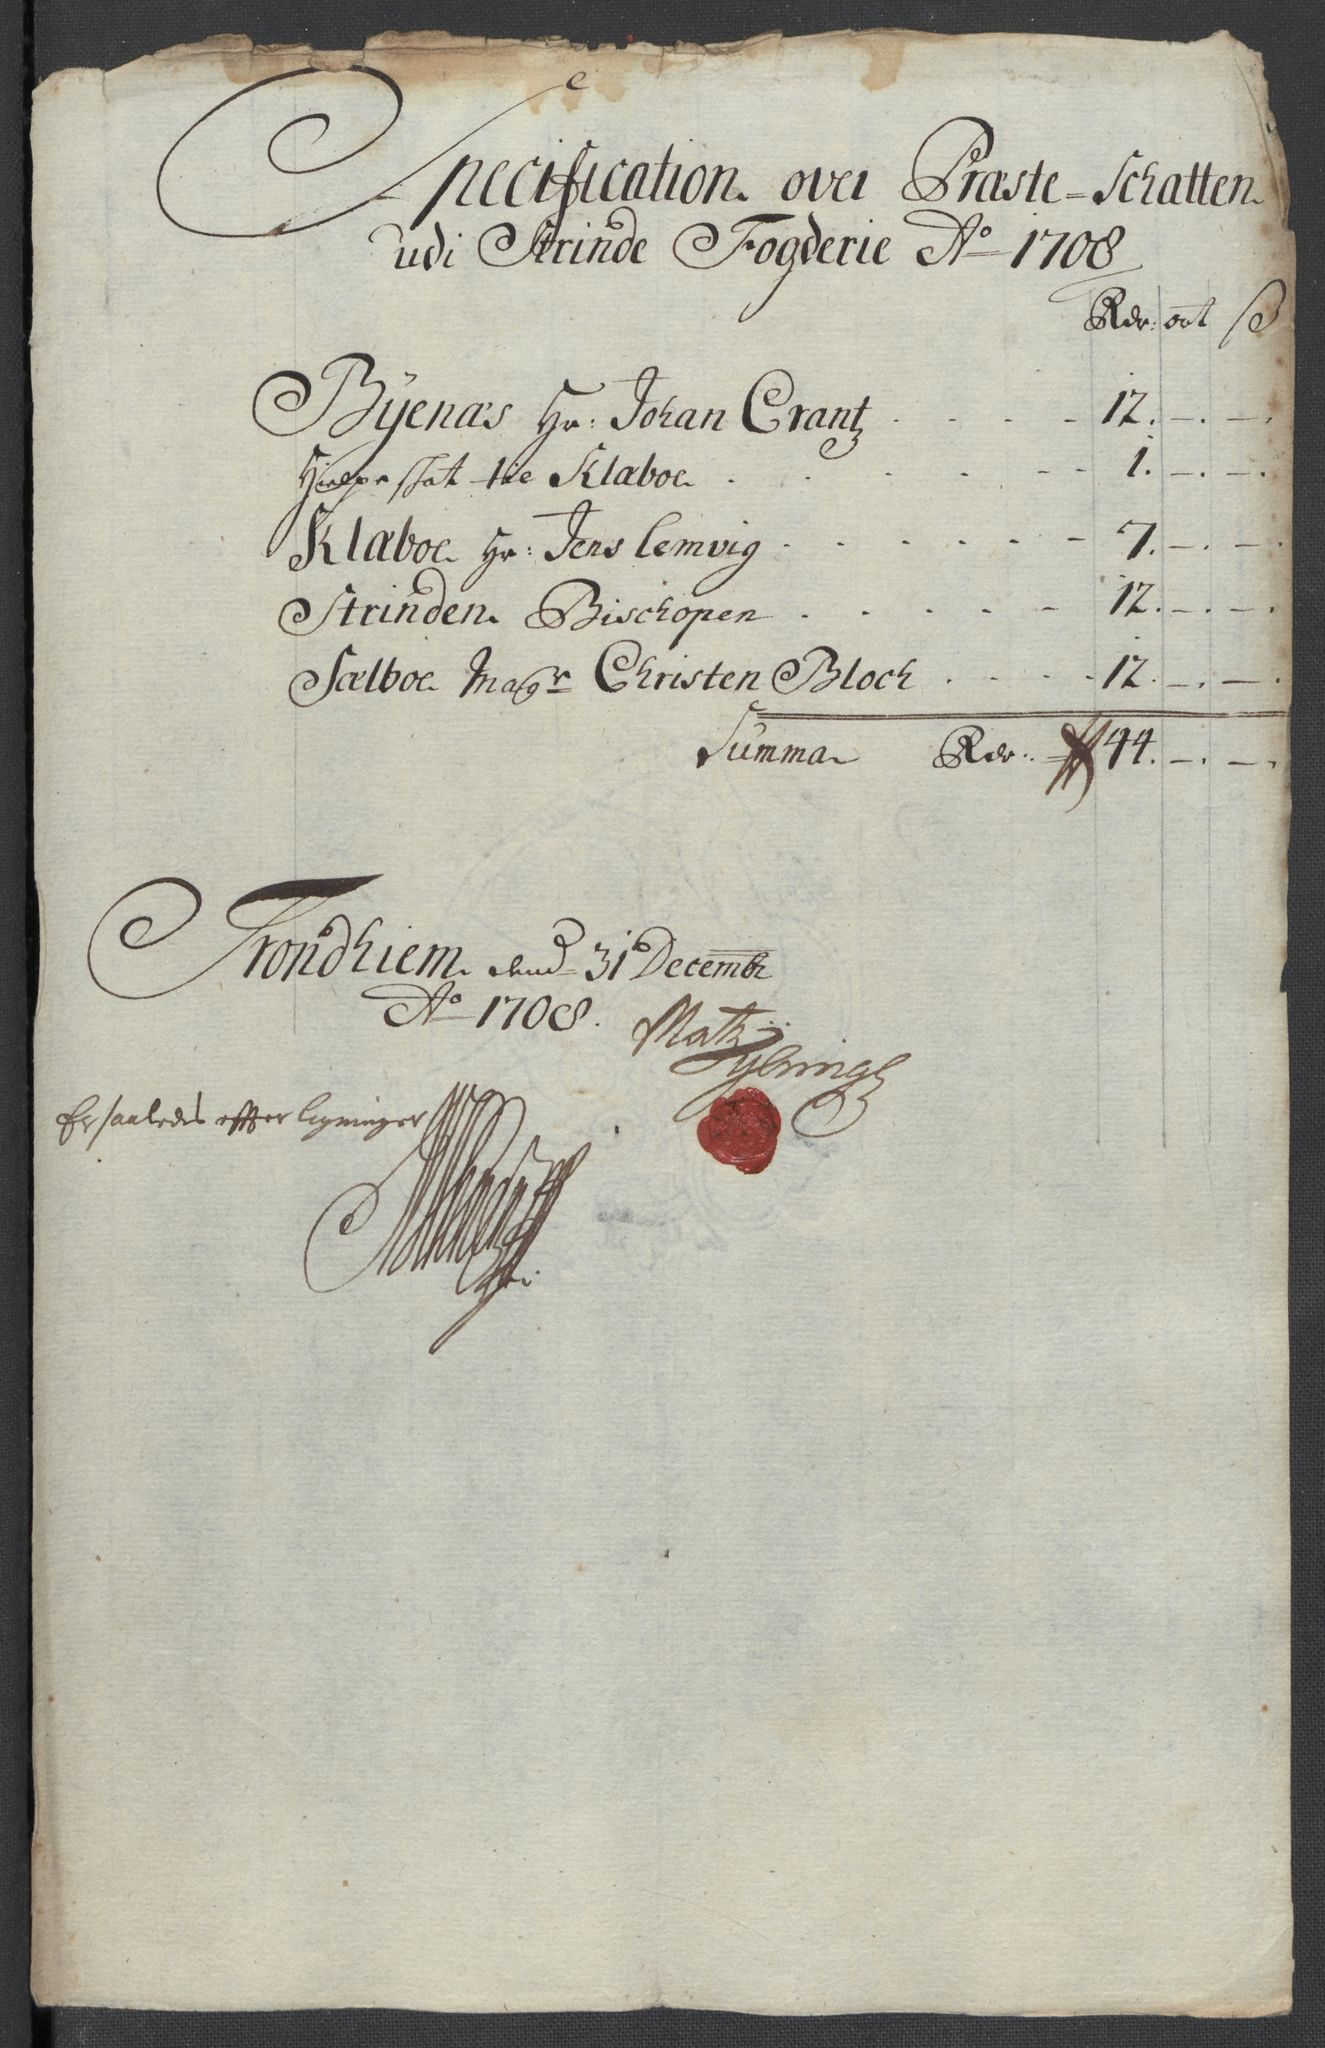 Specification over Præste-Schatten
udi Strinde Fogderie Ao 1708
Rdr: ort ß
Bÿenæs Hr: Johan Crantz . . . . - 12. -. -
Hielpe skat til Klæboe . . . . - - 1. -. -.
Klæboe Hr: Jens Lemvig - . . . . - - 7. -. -.
Strinden Bischopen . . . . - 12. -. -.
Sælboe Magr Christen Bloch . . . . 12. -. -.
Summa Rdr: 44. -. -.
Trondhiem dend 31 Decembr
Ao 1708.
Matz
Er saaledes effter ligninger